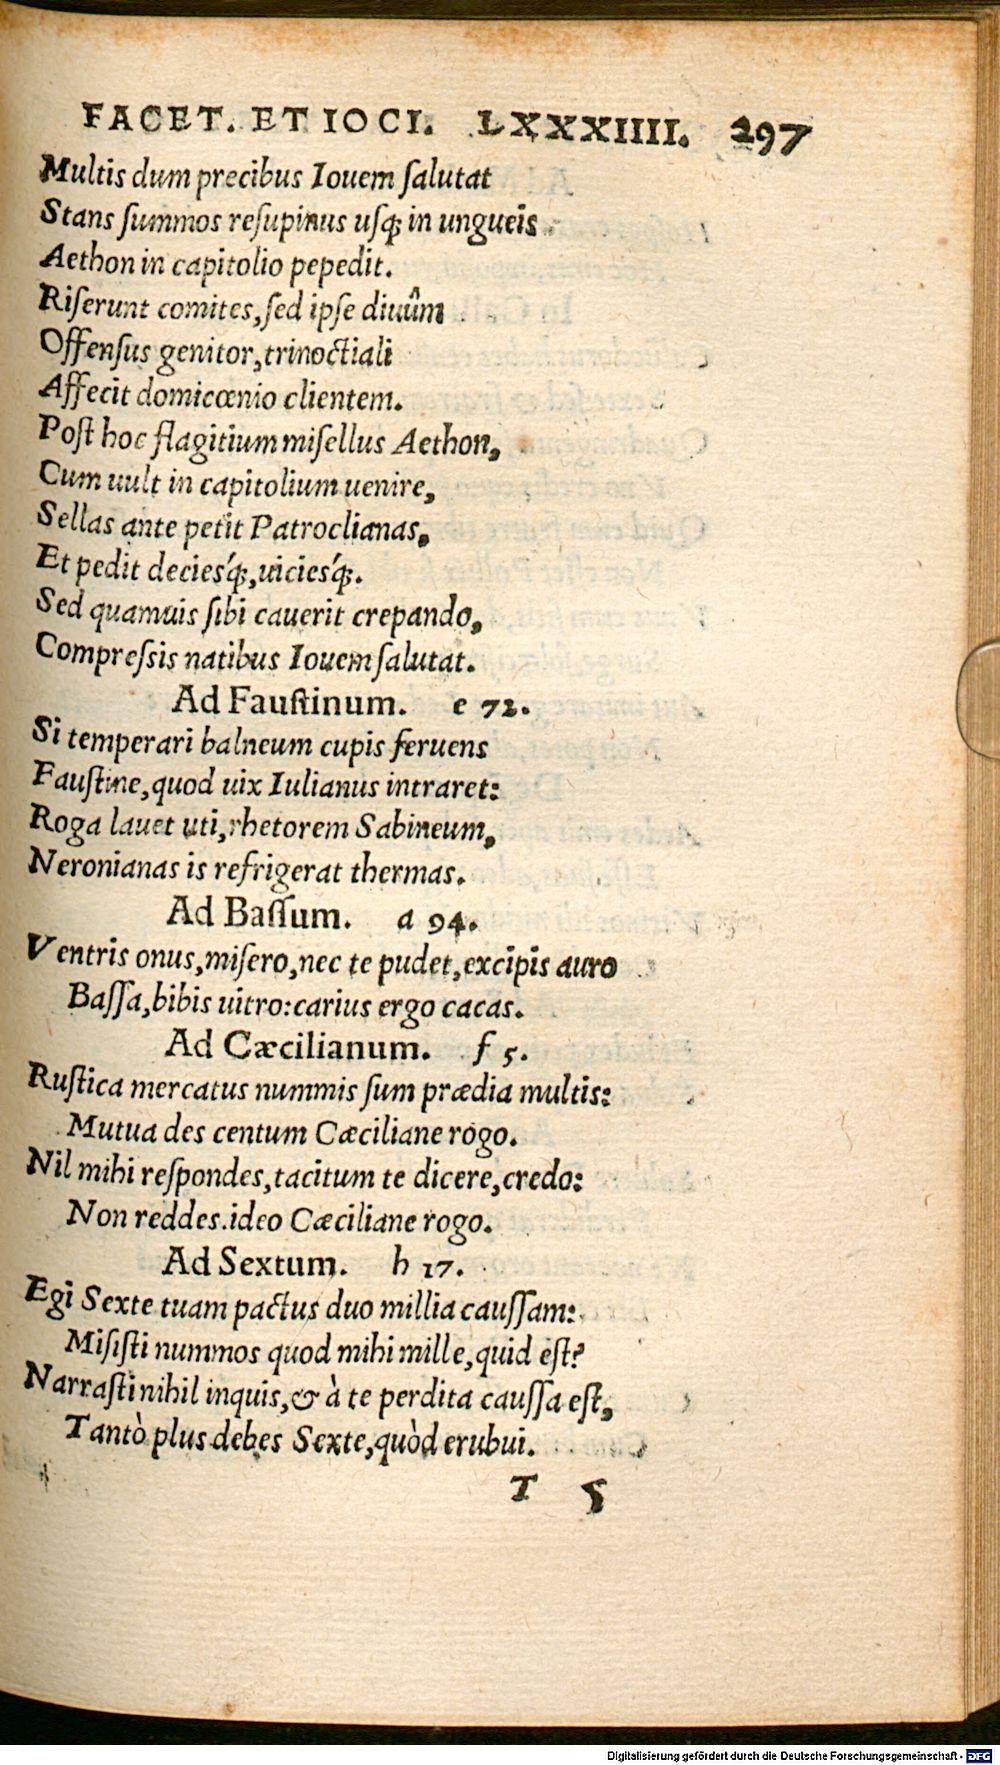 FACET. ET IOCI. LXXXIIII. 297
Multis dum precibus Iouem ſalutat
Stans ſummos reſupinus uſq; in ungueis.
Aethon in capitolio pepedit.
Riſerunt comites, ſed ipſe diuûm
Offenſus genitor, trinoctiali
Affecit domicœnio clientem.
Poſt hoc flagitium miſellus Aethon,
Cum uult in capitolium uenire,
Sellas ante petit Patroclianas,
Et pedit decieſq́;, uicieſq́;.
Sed quamuis ſibi cauerit crepando,
Compreſsis natibus Iouem ſalutat.
Ad Fauſtinum. e 72.
Si temperari balneum cupis feruens
Fauſtine, quod uix Iulianus intraret:
Roga lauet uti, rhetorem Sabineum,
Neronianas is refrigerat thermas.
Ad Baſſum. a 94.
Ventris onus, miſero, nec te pudet, excipis auro
Baſſa, bibis uitro: carius ergo cacas.
Ad Cæcilianum. f 5.
Ruſtica mercatus nummis ſum prædia multis:
Mutua des centum Cæciliane rogo.
Nil mihi reſpondes, tacitum te dicere, credo:
Non reddes. ideo Cæciliane rogo.
Ad Sextum. h 17.
Egi Sexte tuam pactus duo millia cauſſam:
Miſiſti nummos quod mihi mille, quid eſt?
Narraſti nihil inquis, & à te perdita cauſſa eſt,
Tantò plus debes Sexte, quòd erubui.
T 5
Digitalisierung gefördert durch die Deutsche Forschungsgemeinschaft - DFG